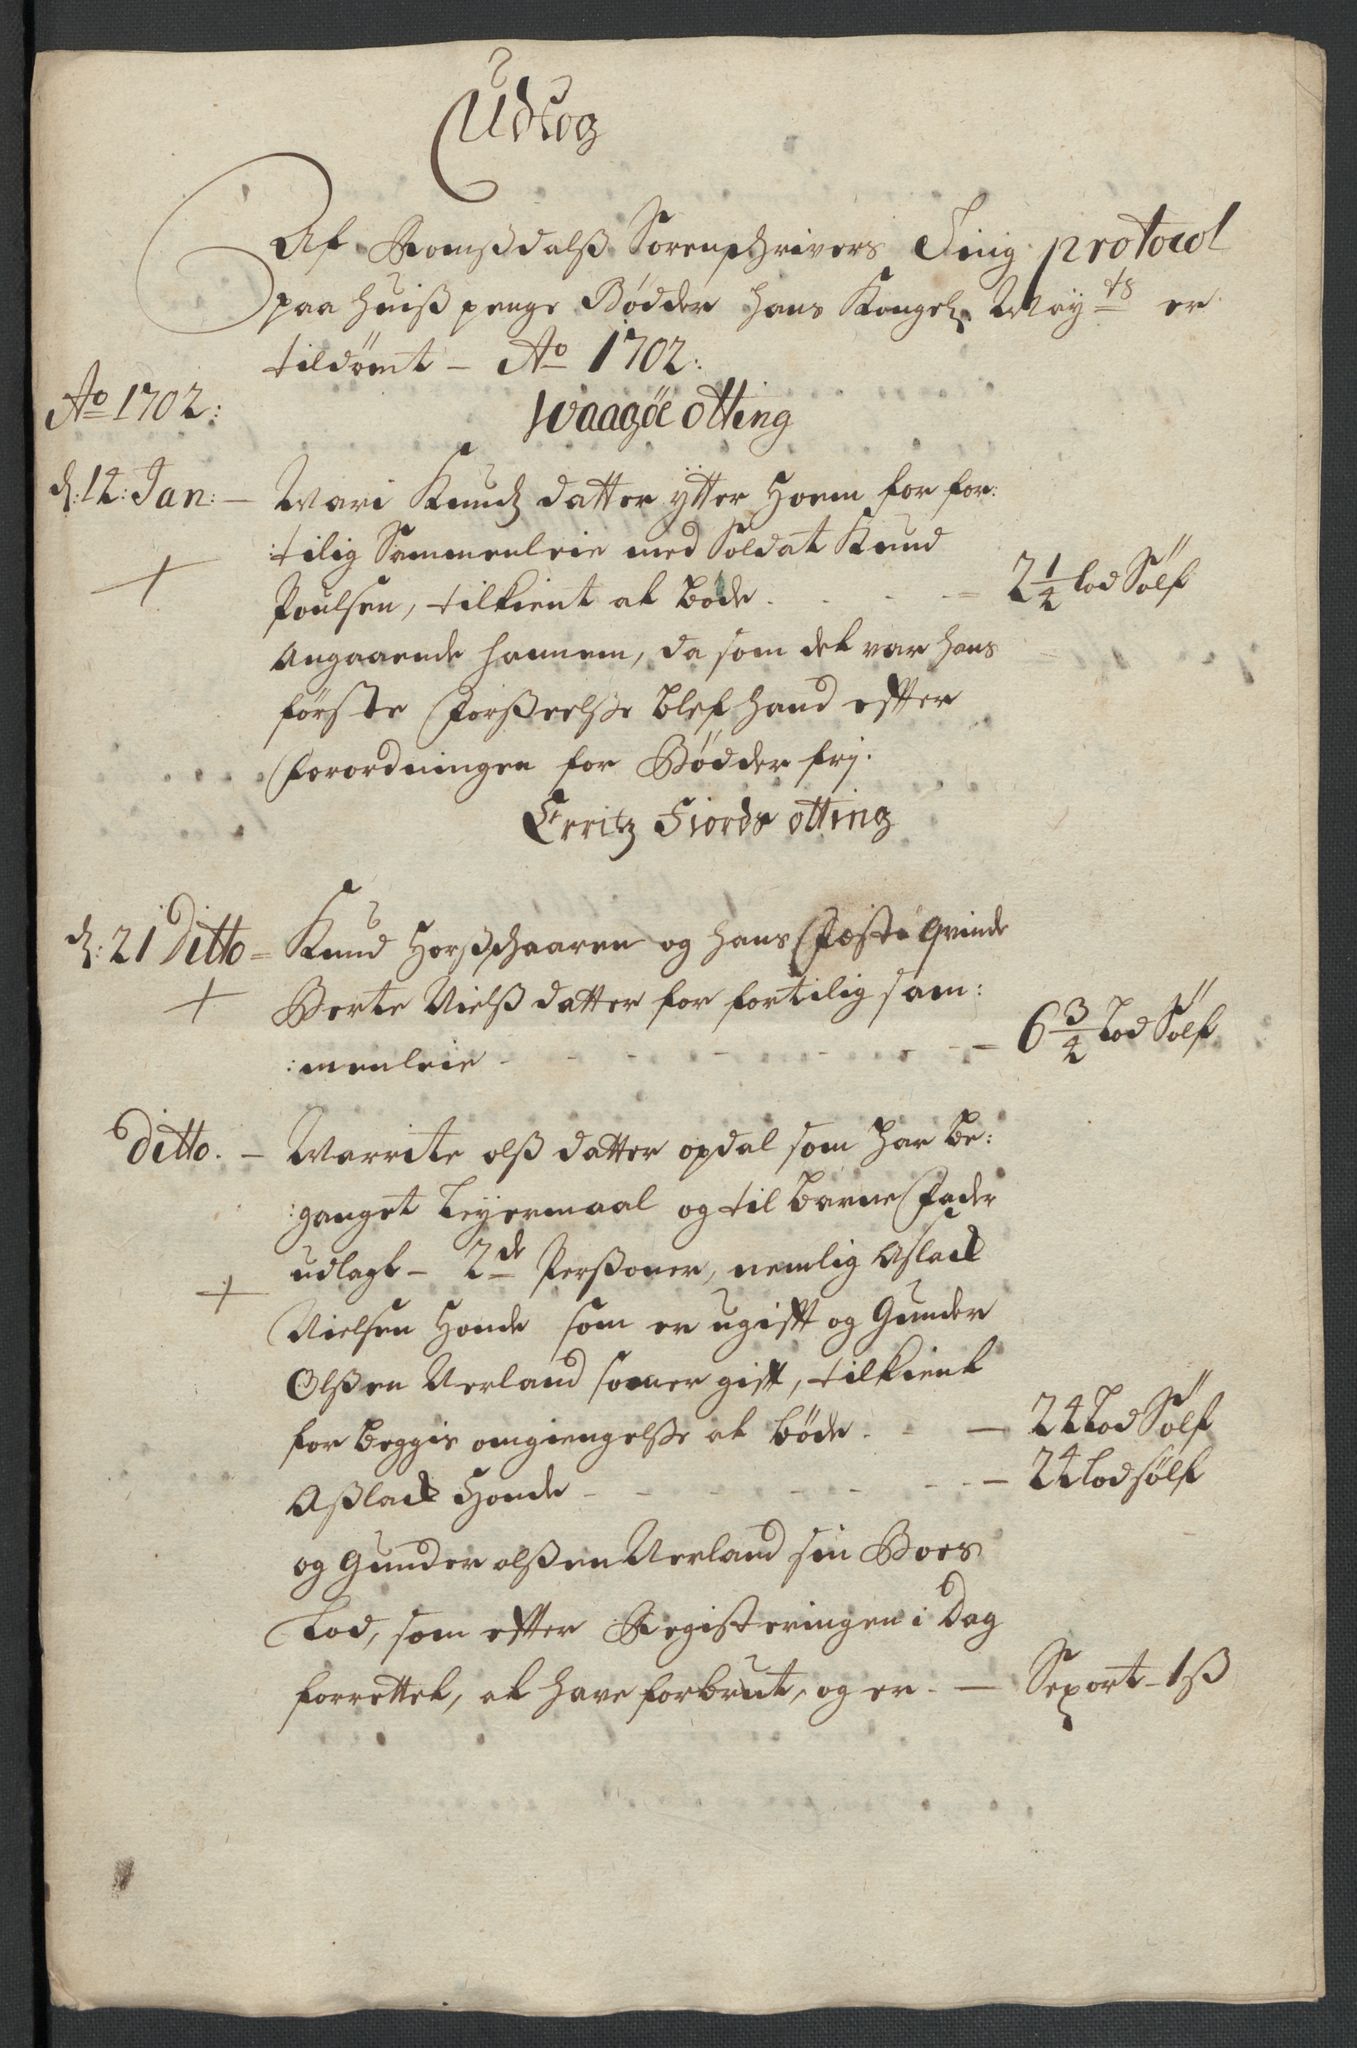 Udtog
Af Romßdalß Sorenschrivers Ting protocol
paa huiß penge Bødder hans Kongel. May:ts er
tildømt – Ao 1702:
Ao 1702:
Waagøe otting
d: 12: Jan: – Mari Knudz datter ytter Hoem for for:
:tilig Sammenleie med Soldat Knud
Poulsen, tilkient at bøde. – – 2 1/2 lod Sølf
Angaaende hannem, da som det var hans
første Forßeelße blef hand effter
forordningen for Bødder frj.
Erritz Fiords otting
d: 21 Ditto – Knud Horßschaaren og hans Fæste qvinde
Berte Nielß datter for fortilig sam:
:menleie – – 6 3/4 Lod Sølf
Ditto. – Marrite olß datter opdal som har be:
:ganget Leyermaal og til barne Fader
udlagt – 2de Perßoner, nemlig Aslack
Nielsen Honde som er ugifft og Gunder
Olßen Nerland som er gifft, tilkient
for beggis omgiengelße at bøde. – – 24 Lod Sølf
Aßlack Honde – – 24 Lod sølf
og Gunder olßen Nerland sin Boes
Lod, som effter Registeringen i Dag
forrettet, at have forbrut, og er. – Seport – 1 ß